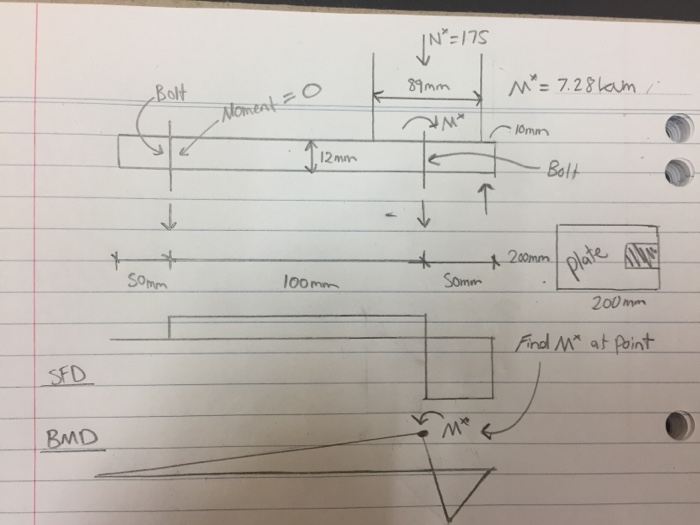 N* = 175
89mm
M* = 7.28kNm
Bolt
Moment = 0
M*
10mm
12mm
Bolt
50mm
100mm
50mm
200mm
plate
200mm
SFD
Find M* at point
BMD
M*